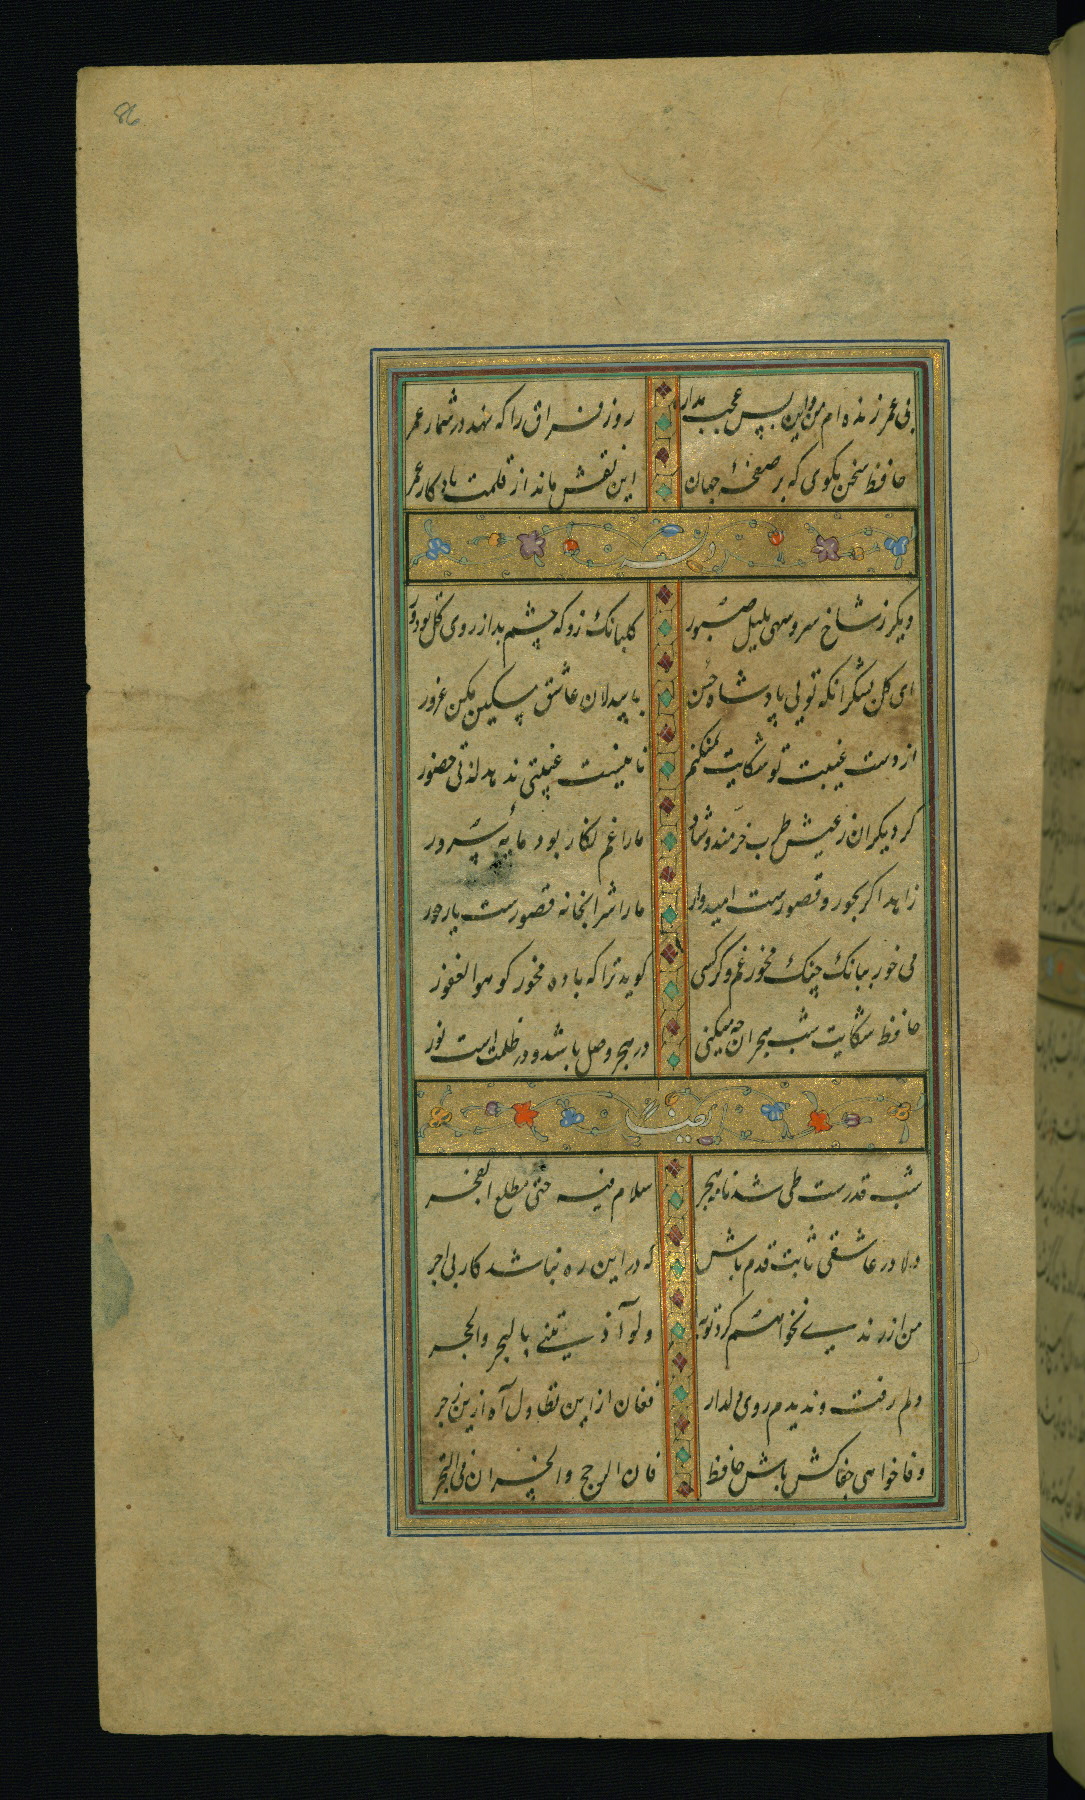 86
بی عمر زنده ام من و این بس عجب مدار
روز فراق را که نهد در شمار عمر
حافظ سخن بگوی که بر صفحهٔ جهان
این نقش ماند از قلمت یادکار عمر
دیکر ز شاخ سرو سهی بلبل صبور
کلبانک زد که چشم بد از روی کل بود دور
ای کل بشکر انکه تویی پادشاه حسن
با بیدلان عاشق مسکین مکن غرور
از دست غیبت تو شکایت نمیکنم
تا نیست غیبتی ندهد لذتی حضور
کر دیکران ز عیش طرب خرمند و شاد
ما را غم نکار بود مایه سرور
زاهد اکر بحور و قصورست امیدوار
ما را شرابخانه قصورست یار حور
می خور ببانک چنک مخور غم و کر کسی
کوید ترا که باده مخور کو هو الغفور
حافظ شکایت شب هجران چه میکنی
در هجر وصل باشد و در ظلمت است نور
ایضا
شب قدرست طی شد نامه هجر
سلام فیه حتی مطلع الفجر
دلا در عاشقی ثابت قدم باش
که در این ره نباشد کار بی اجر
من از رندی نخواهم کرد توبه
ولو آذیتنی بالهجر والحجر
دلم رفت و ندیدم روی دلدار
فغان از این تطاول آه ازین زجر
وفا خواهی جفاکش باش حافظ
فان الربح والخسران فی التجر